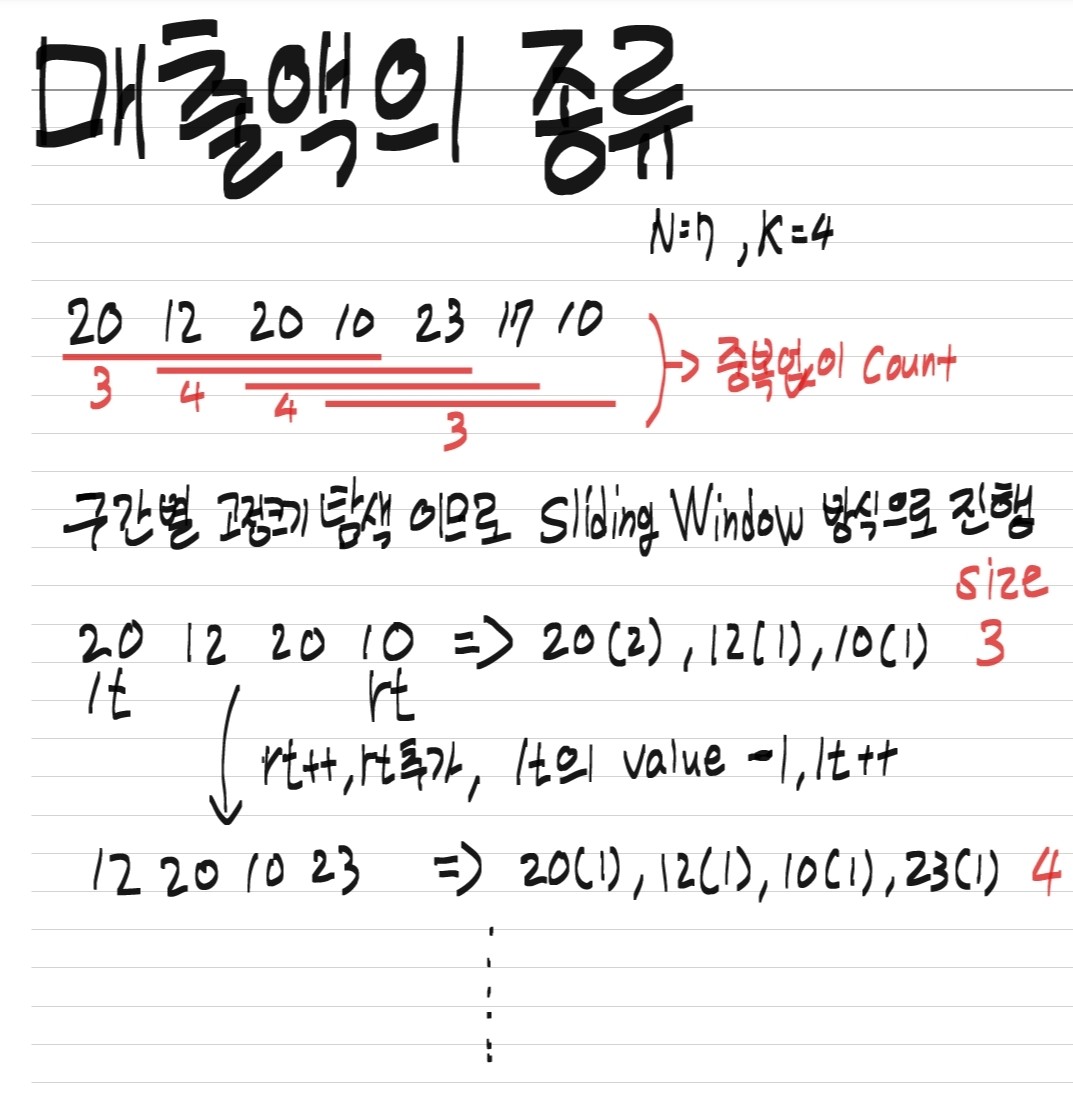 매출액의 종류
N=7, K=4
20 12 20 10 23 17 10
→ 중복없이 Count
3 4 4 3
구간별 고정크기 탐색 이므로 Sliding Window 방식으로 진행
size
20 12 20 10 => 20(2), 12(1), 10(1) 3
lt rt
rt++, rt추가, lt의 value -1, lt++
12 20 10 23 => 20(1), 12(1), 10(1), 23(1) 4